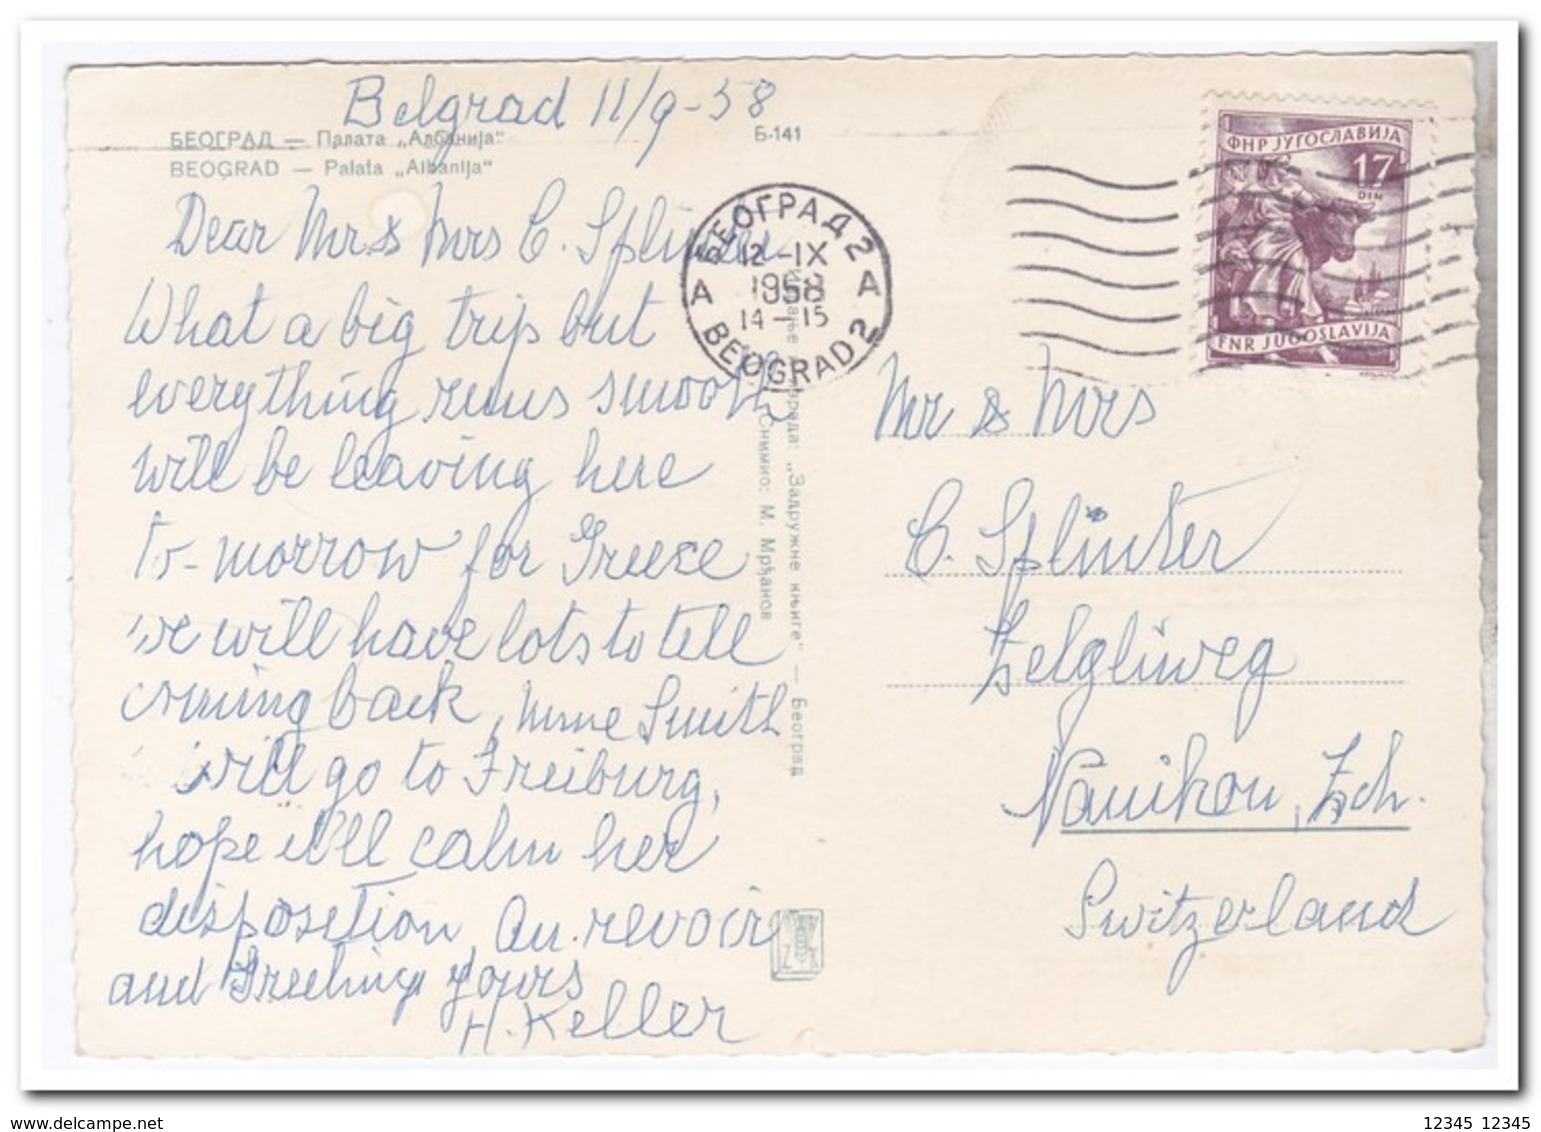 Belgrad 11/9-58
БЕОГРАД — Палата „Албанија"
Б-141
BEOGRAD — Palata „Albanija"
Dear Mr. & Mrs C. Splinter
What a big trip but
everything runs smooth
will be leaving here
to-morrow for Greece
we will have lots to tell
coming back, Mme Smith
will go to Freiburg,
hope it'll calm her
disposition, Au revoir
and Greeting yours
H. Keller
БЕОГРАД 2
A 12-IX A
1958
14-15
BEOGRAD 2
ФНР ЈУГОСЛАВИЈА
17
DIN
FNR JUGOSLAVIJA
„Задружне књиге" — Београд
Снимио: М. Мрђанов
Mr & Mrs
C. Splinter
Zelgliweg
Nanikon, Zch.
Switzerland
www.delcampe.net
12345 12345